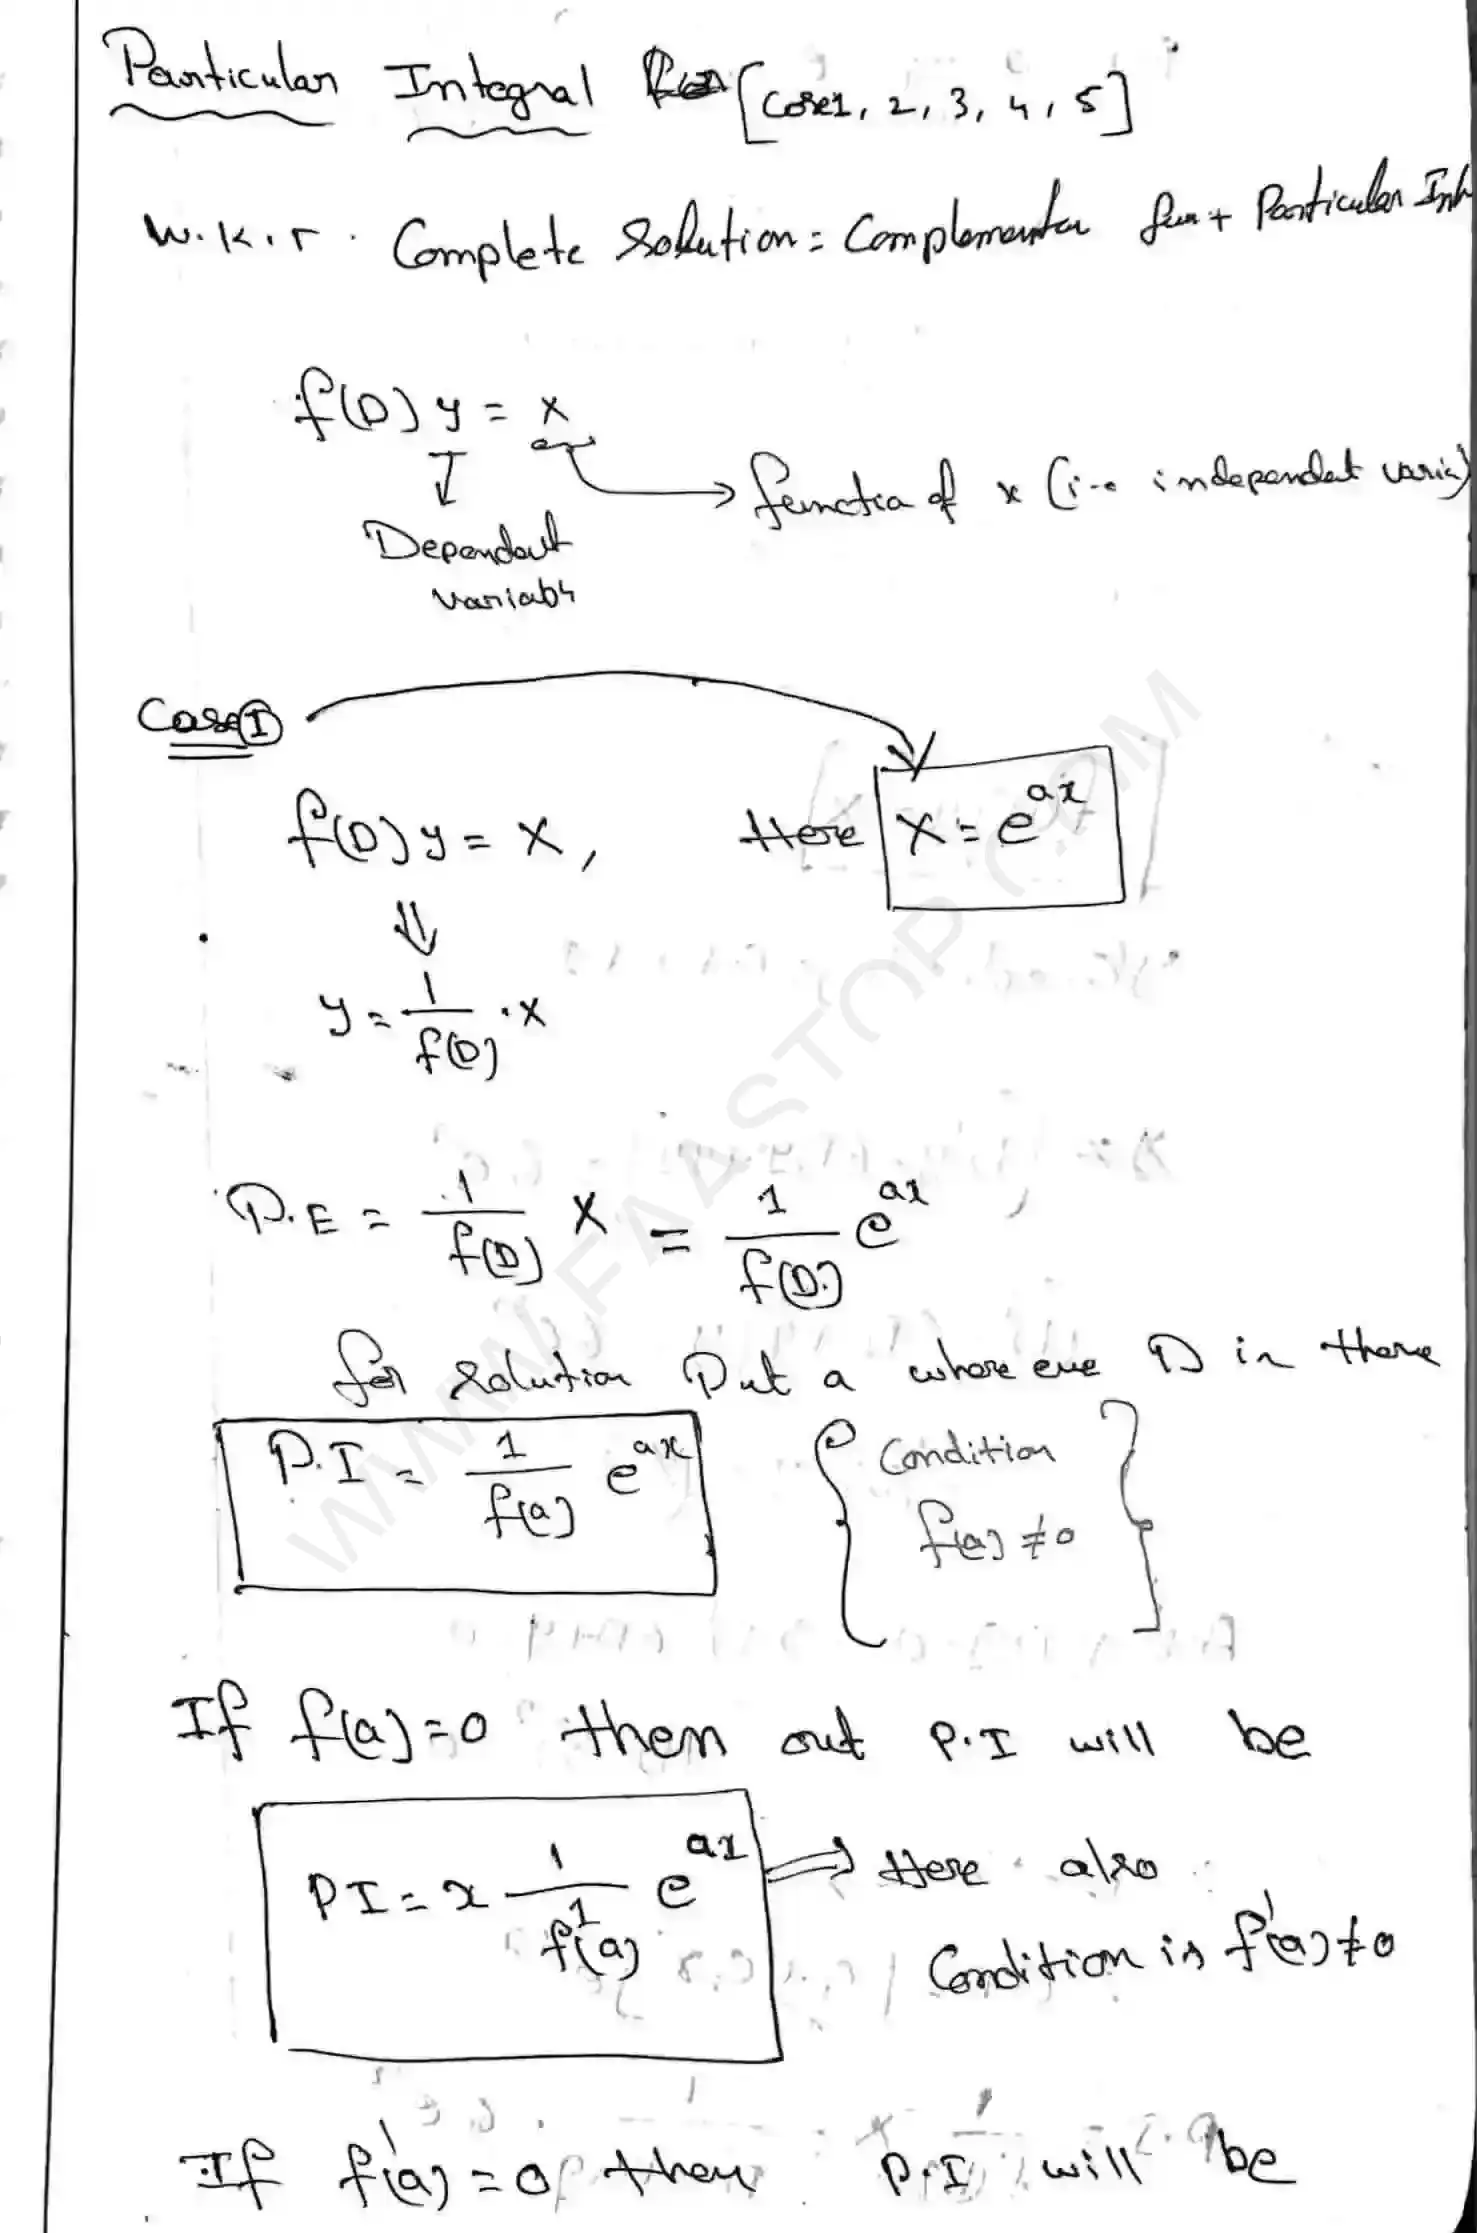 Particular Integral For [Case1, 2, 3, 4, 5]
W.K.T. Complete Solution = Complementar fun + Particular Int
f(D) y = X
function of x (i.e independent varia)
Dependent
variable
Case I
f(D) y = X, Here X = e^{ax}
⇓
y = \frac{1}{f(D)} · X
P.E = \frac{1}{f(D)} X = \frac{1}{f(D)} e^{ax}
for solution Put a where eve D in there
P.I = \frac{1}{f(a)} e^{ax} { Condition
f(a) ≠ 0 }
If f(a) = 0 then out P.I will be
PI = x \frac{1}{f^1(a)} e^{ax} ⇒ Here also
Condition is f'(a) ≠ 0
If f'(a) = 0 then P.I will be
WWW.FAASTOP.COM